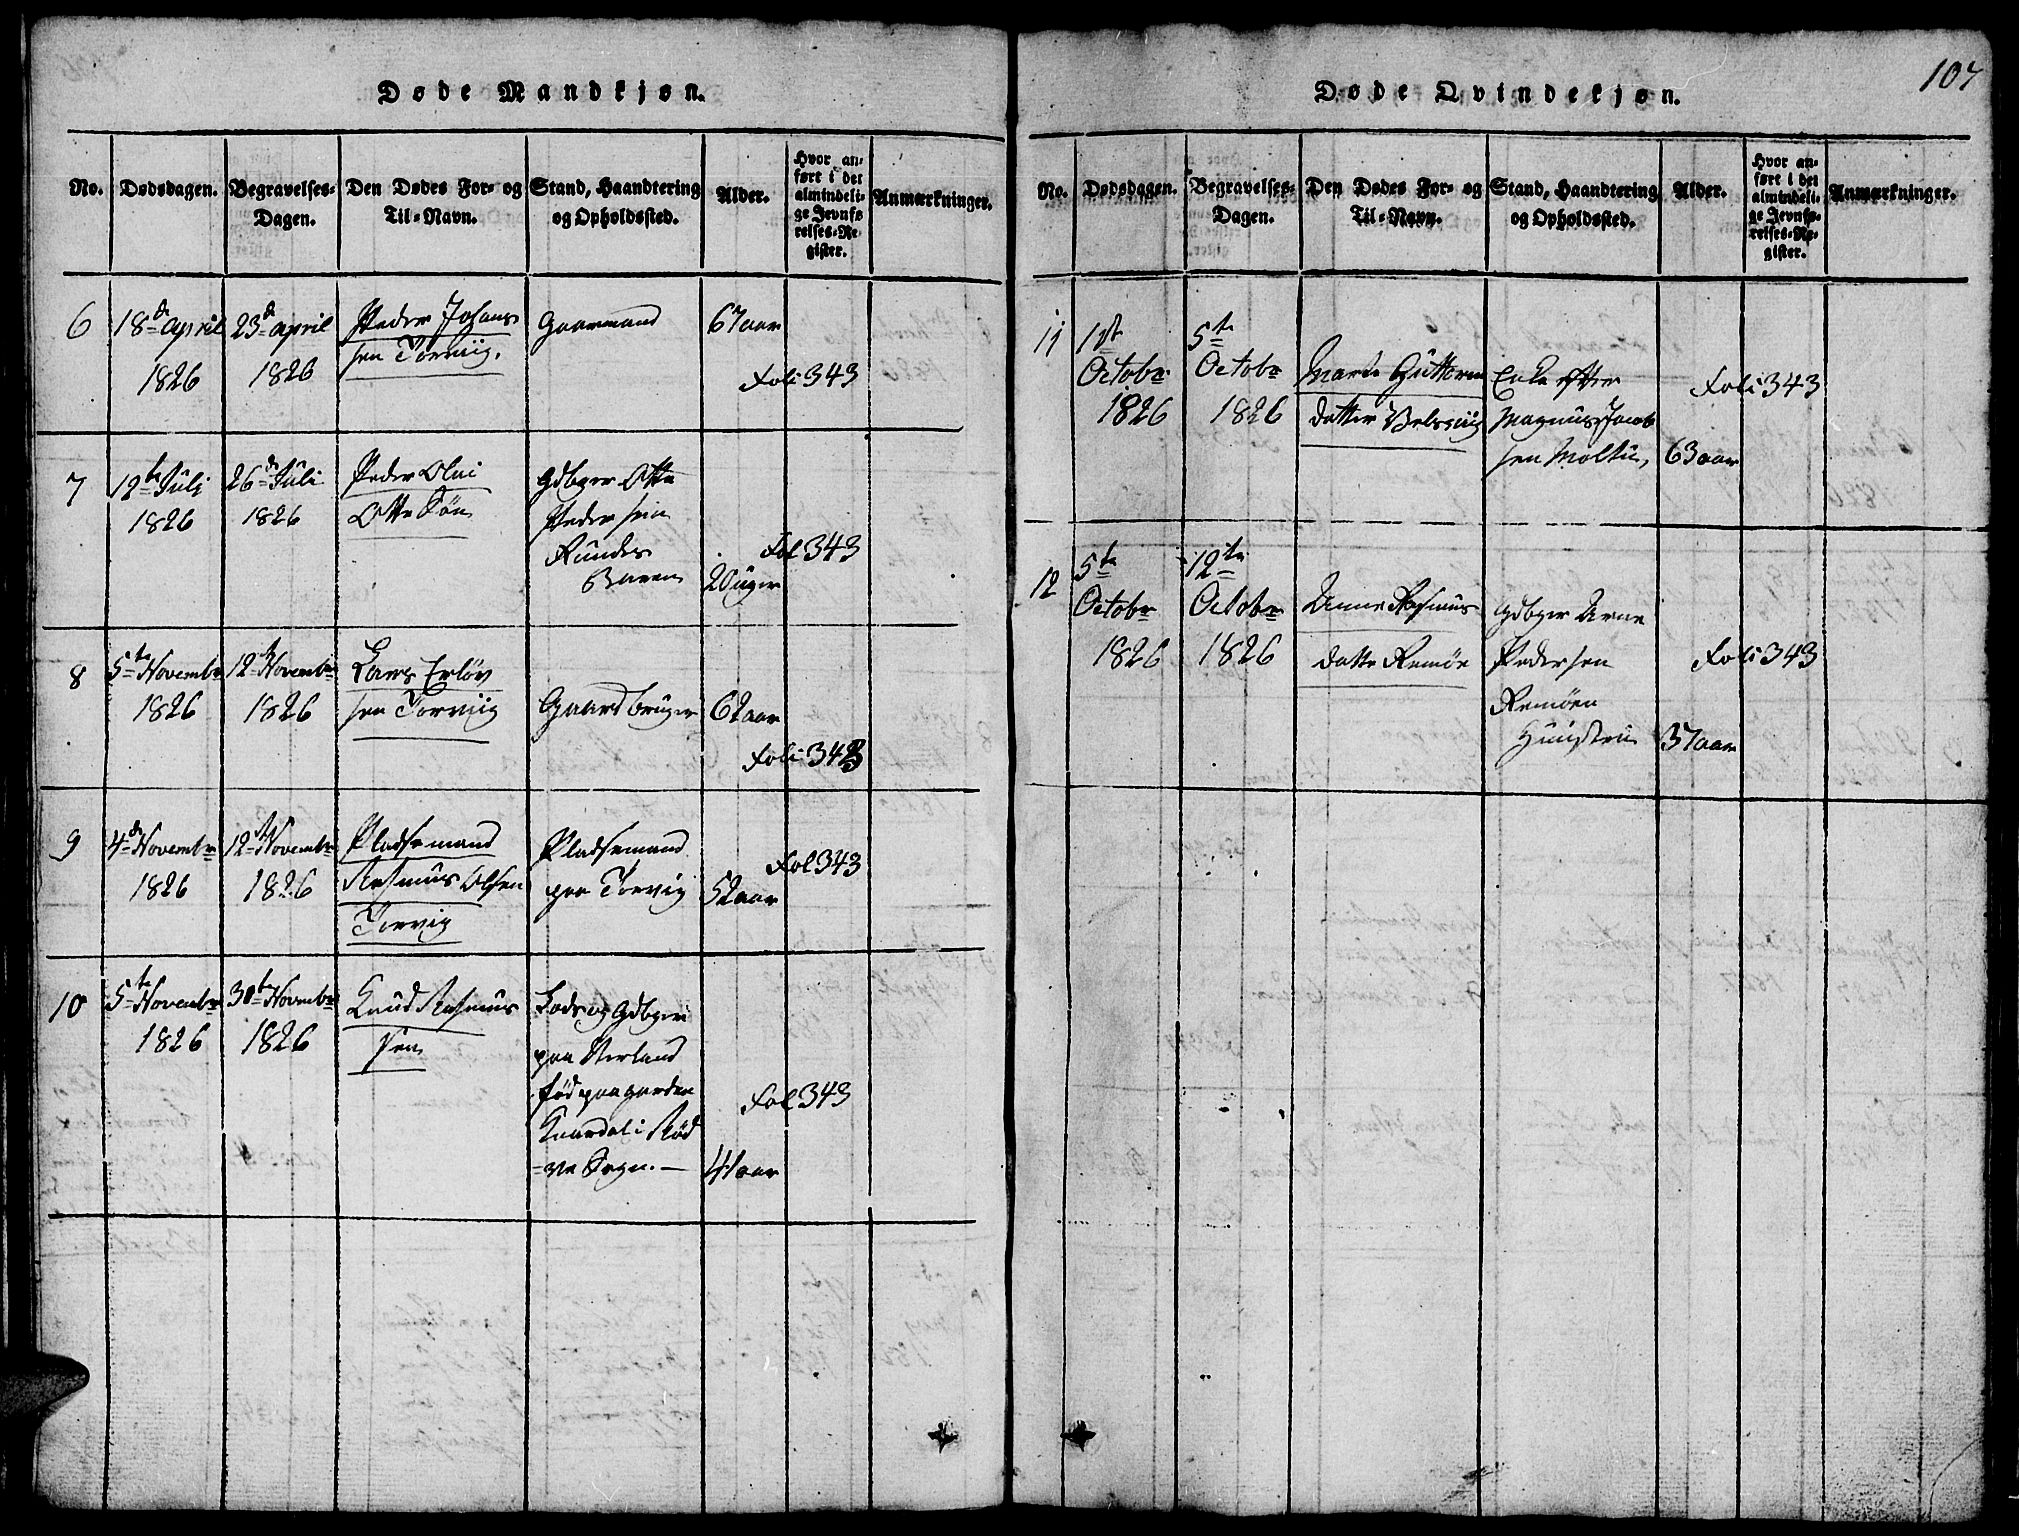 Døde Mandkjøn.
No.
Dødsdagen.
Begravelses-
Dagen.
Den Dødes For- og
Til-Navn.
Stand, Haandtering
og Opholdssted.
Alder.
Hvor an-
ført i det
almindeli-
ge Jevnfø-
relses-Re-
gister.
Anmærkninger.
6
18de april
1826
23de april
1826
Peder Johans
sen Torviig.
Gaarmand
67 aar
Foli 343
7
12te Julj
1826
26de Juli
1826
Peder Olai
Otte Søn
Gdbger Otte
Peder sen
Runder
20 uger
Fol 343
8
5te Novembr
1826
12te Novembr
1826
Lars
sen Torviig
Gaard bruger
62 aar
Foli 343
9
4de Novembr
1826
12te Novembr
1826
Pladsemand
Rasmus Olsen
Torvig
Pladsemand
paa Torvig
52 aar
Fol 343
10
5te Novembr
1826
30te Novembr
1826
Knud Rasmus
sen
Lods og Gdbger
paa Nerland
fød paa garden
i Rød
-ve Sogn. —
41 aar
Fol 343
Døde Qvindekjøn.
107
No.
Dødsdagen.
Begravelses-
Dagen.
Den Dødes For- og
Til-Navn.
Stand, Haandtering
og Opholdssted.
Alder.
Hvor an-
ført i det
almindeli-
ge Jevnfø-
relses-Re-
gister.
Anmærkninger.
11
1ste
Octobr
1826
5te
Octobr
1826
Marte Gutterm
datter
Enke efter
Magnus Jacob
sen Moltu,
63 aar
Foli 343
12
5te
Octobr
1826
12te
Octobr
1826
Anne Rasmus
datte Remøe
Gdbger Arne
Pedersen
Remøen
Huustru
37 aar
Foli 343